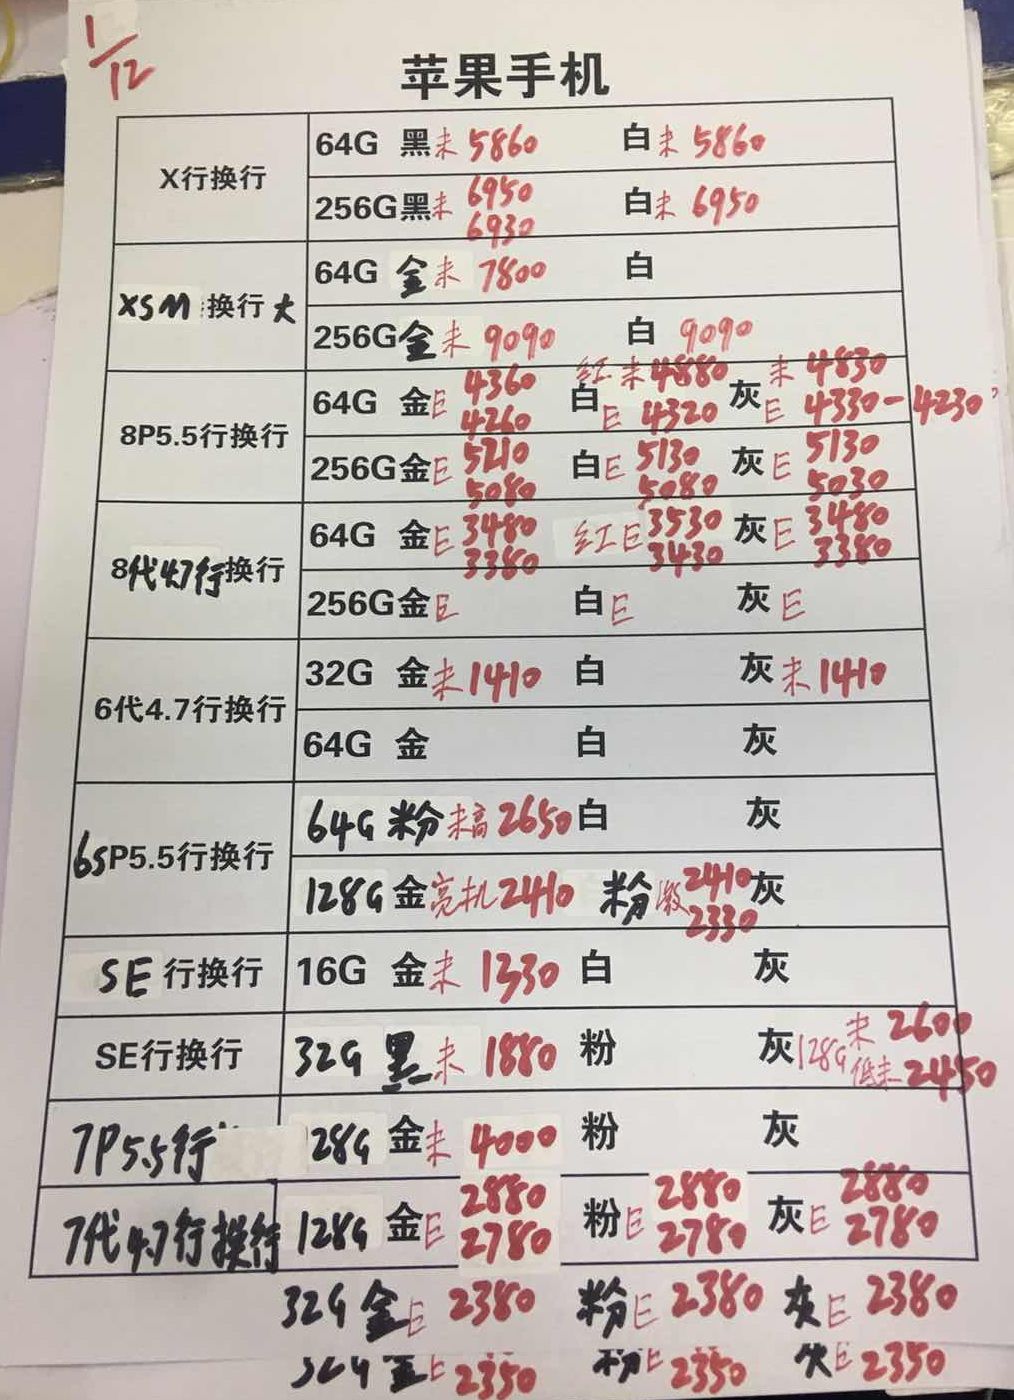 1/12
苹果手机
X行换行
64G 黑未 5860 白未 5860
256G黑未 6950 白未 6950
6930
XSM 换行大
64G 金未 7800 白
256G金未 9090 白 9090
8P5.5行换行
红未4880 未 4830
64G 金E 4360 白E 4320 灰E 4330-4230
4260
256G金E 5210 白E 5130 灰E 5130
5080 5080 5030
8代4.7行换行
64G 金E 3480 红E 3530 灰E 3480
3380 3430 3380
256G金E 白E 灰E
6代4.7行换行
32G 金未1410 白 灰未1410
64G 金 白 灰
6SP5.5行换行
64G 粉未高2650 白 灰
128G 金亮机2410 粉激2410 灰
2330
SE 行换行
16G 金未 1330 白 灰
SE行换行
32G 黑未 1880 粉 灰 128G未 2600
低未2450
7P5.5行
128G 金未 4000 粉 灰
7代4.7行换行
128G 金E 2880 粉E 2880 灰E 2880
2780 2780 2780
32G 金E 2380 粉E 2380 灰E 2380
32G 金E 2350 粉E 2350 灰E 2350